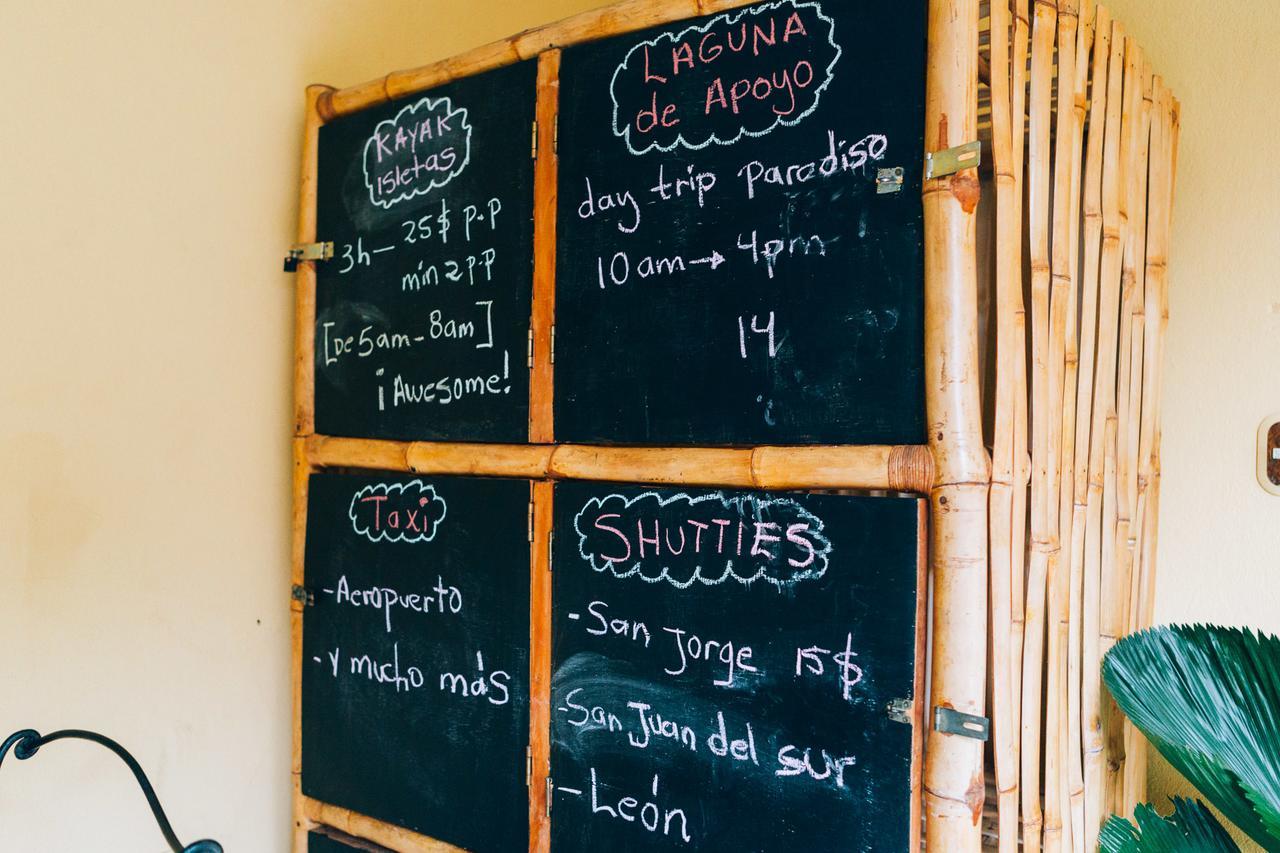 KAYAK
isletas
3h – 25$ p.p
min 2 p.p
[De 5am - 8am]
¡Awesome!
LAGUNA
de Apoyo
day trip Paradiso
10am → 4pm
14
Taxi
- Aeropuerto
- y mucho más
SHUTTlES
- San Jorge 15$
- San Juan del sur
- León